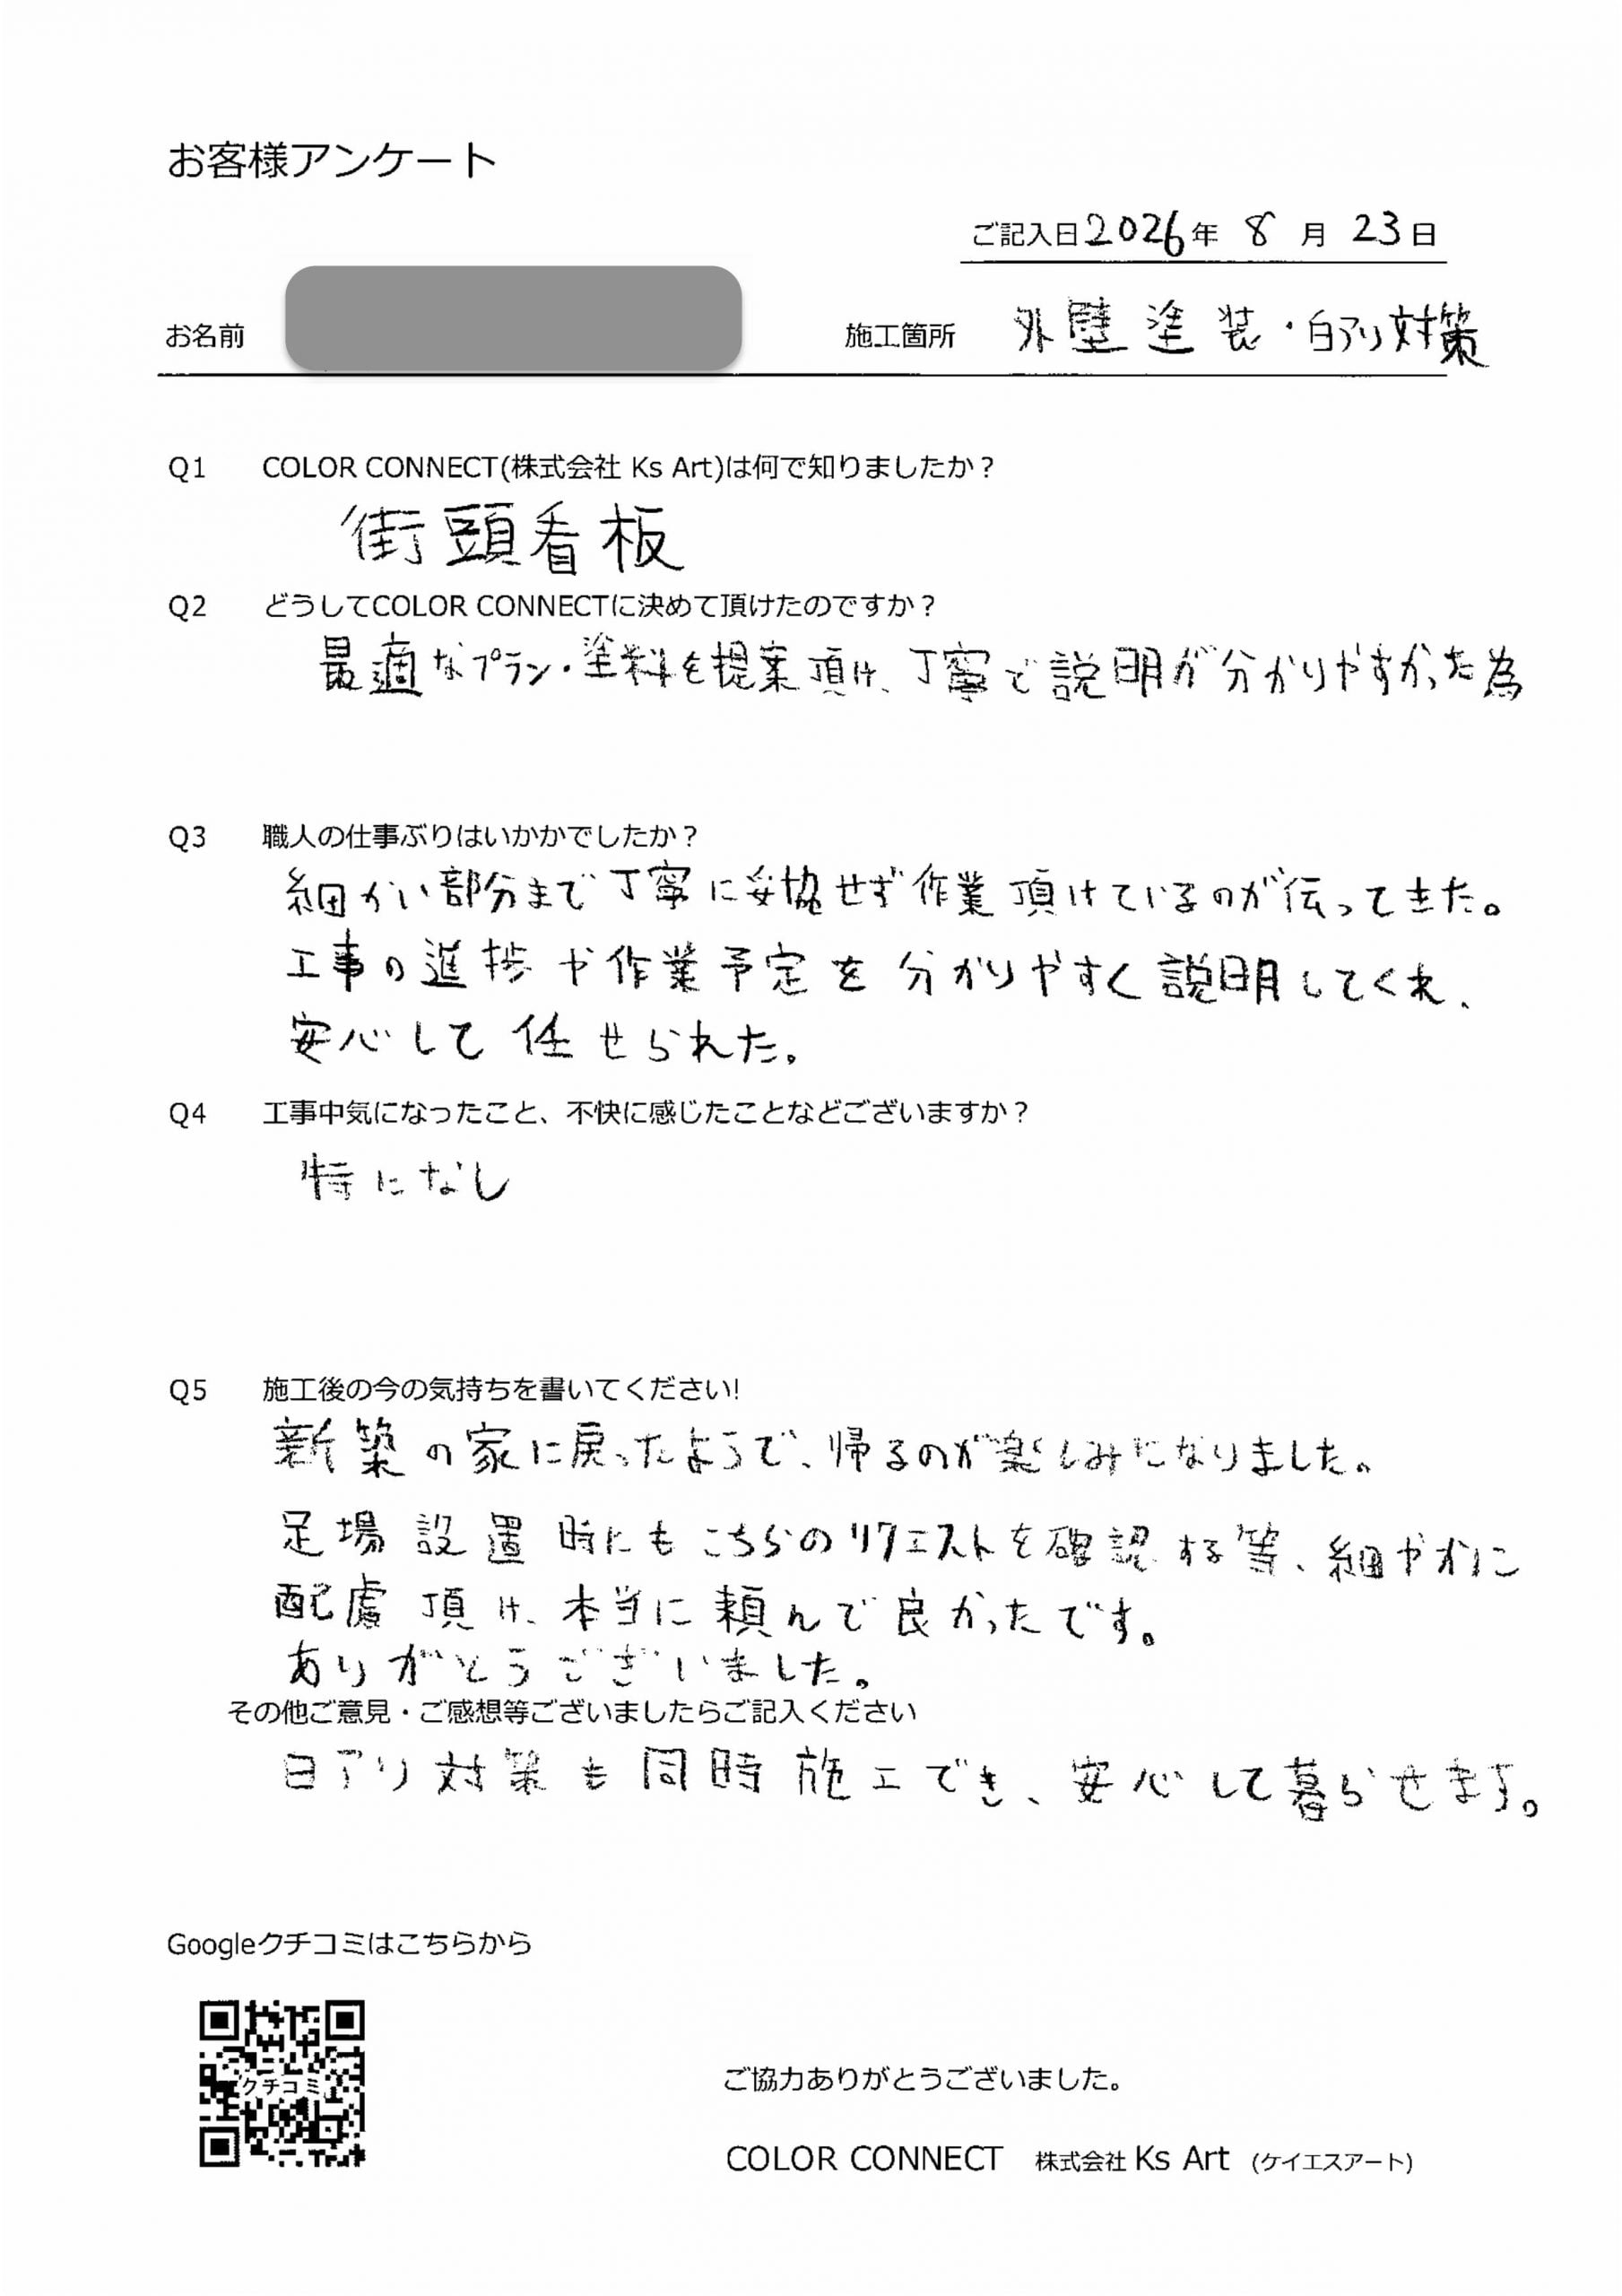 お客様アンケート
ご記入日2026年 8 月 23日
お名前
施工箇所 外壁塗装・白アリ対策
Q1 COLOR CONNECT(株式会社 Ks Art)は何で知りましたか？
街頭看板
Q2 どうしてCOLOR CONNECTに決めて頂けたのですか？
最適なプラン・塗料を提案頂け、丁寧で説明が分かりやすかった為
Q3 職人の仕事ぶりはいかかでしたか？
細かい部分まで丁寧に妥協せず作業頂けているのが伝ってきた。
工事の進捗や作業予定を分かりやすく説明してくれ、
安心して任せられた。
Q4 工事中気になったこと、不快に感じたことなどございますか？
特になし
Q5 施工後の今の気持ちを書いてください!
新築の家に戻ったようで、帰るのが楽しみになりました。
足場設置時にもこちらのリクエストを確認する等、細やかに
配慮頂け、本当に頼んで良かったです。
ありがとうございました。
その他ご意見・ご感想等ございましたらご記入ください
白アリ対策も同時施工でき、安心して暮らせます。
Googleクチコミはこちらから
クチコミ
ご協力ありがとうございました。
COLOR CONNECT 株式会社 Ks Art (ケイエスアート)